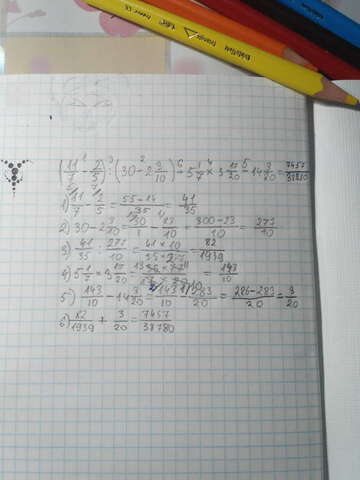 (11/7 - 2/5) : (30 - 2 3/10) + 5 1/7 × 3 17/20 - 14 3/20 = 7457/38780
1) 11/7 - 2/5 = 55-14/35 = 41/35
2) 30 - 2 3/10 = 30/1 - 23/10 = 300-23/10 = 277/10
3) 41/35 : 277/10 = 41×10/35×277 = 82/1939
4) 5 1/7 × 3 17/20 = = 143/10
5) 143/10 - 14 3/20 = 143/10 - 283/20 = 286-283/20 = 3/20
6) 82/1939 + 3/20 = 7457/38780